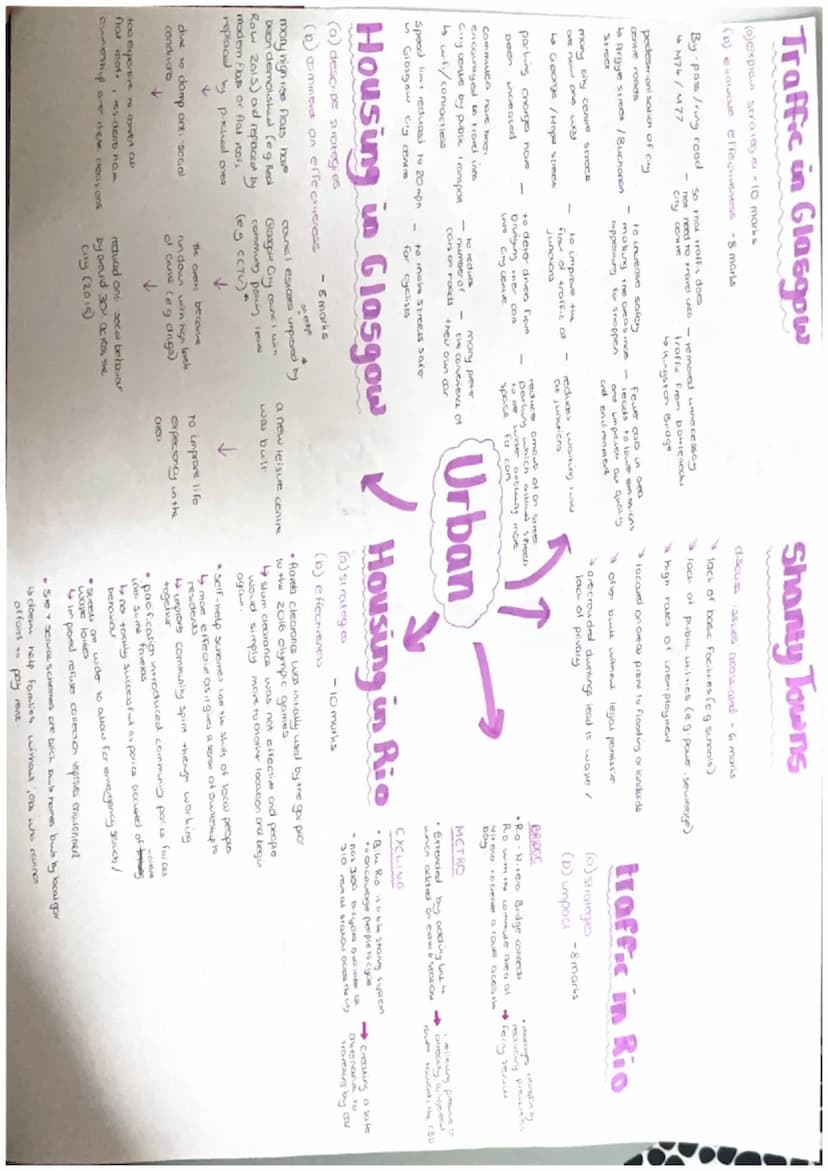 Traffic in Glasgow
(a) explain strategies - 10 marks
(b) evaluate effectiveness - 8 marks
By-pass / ring road
↳ M74 / M77
- so that traffic does
not need to travel into
city centre
- removed unnecessary
traffic from bottlenecks
↳ Kingston Bridge
pedestrianisation of city
centre roads
↳ Argyle street / Buchanan
street
- to increase safety
making the areas more
appealing for shoppers
- Fewer cars in area
leads to lower emissions
and improves air quality
and environment
many city centre streets
are now one way
↳ George / Hope street
- to improve the
flow of traffic at
junctions
- reduces waiting times
at junctions
parking charges have
been increased
- to deter drivers from
bringing their cars
into city centre
- reduce amount of on street
parking which allowed streets
to be wider allowing more
space for cars
commuters have been
encouraged to travel into
city centre by public transport
↳ wifi / contactless
- to reduce
number of
cars on roads
- many prefer
the convenience of
their own car
speed limit reduced to 20mph
in Glasgow city centre
- to make streets safer
for cyclists
Housing in Glasgow
(a) describe strategies
(b) comment on effectiveness - 8 marks
many high rise flats have
been demolished (e.g Red
Row 2015) and replaced by
modern flats or flat roofs
replaced by pitched ones
↓
due to damp anti-social
conditions
↓
too expensive to convert all
flat roofs, residents have
ownership over item decisions
council estates improved by
Glasgow City Council with
community policing teams
(e.g CCTV)
↓
the areas became
run down with high levels
of crime (e.g drugs)
↓
reduced anti social behaviour
by around 30% across the
city (2016)
a new leisure centre
was built
↓
to improve life
expectancy in the
area
Urban
Shanty Towns
discuss issues associated - 6 marks
↳ lack of basic facilities (e.g schools)
↳ lack of public utilities (e.g power, sewerage)
↳ high rates of unemployment
↳ located on areas prone to flooding or landslide
↳ often built without legal permission
↳ overcrowded dwelling lead to waste /
lack of privacy
Housing in Rio
(a) strategies
(b) effectiveness - 10 marks
• favela clearance was initially used by the gov prior
to the 2016 olympic games
↳ slum clearance was not effective and people
would simply move to another location and begin
again.
• self-help schemes use the skills of local people
↳ more effective as it gives a sense of ownership to
residents
↳ improve community spirit through working
together
• pacification introduced community police forces
into some favelas
↳ not totally successful as police accused of violent
behaviour
• streets are wider to allow for emergency services /
waste lorries
↳ improved refuse collection improves environment
• site + service schemes are brick built homes built by local gov
↳ doesn't help families without jobs who cannot
afford to pay rent.
Traffic in Rio
(a) strategies
(b) impact - 8 marks
BRIDGE
• Rio - Niteroi Bridge connects
Rio with the commuter area of
Niteroi to create a route across the
bay
→ • manages intensity
reducing pressure on
ferry services
METRO
• Extended by adding line 4
which added an extra 6 stations
→ • relieving pressure on
already congested
routes towards the CBD
CYCLING
• Bike Rio is a bike sharing system
to encourage people to cycle
• has 3100 bicycles available at
310 rental stations across the city
→ creating a safe
alternative to
travelling by car